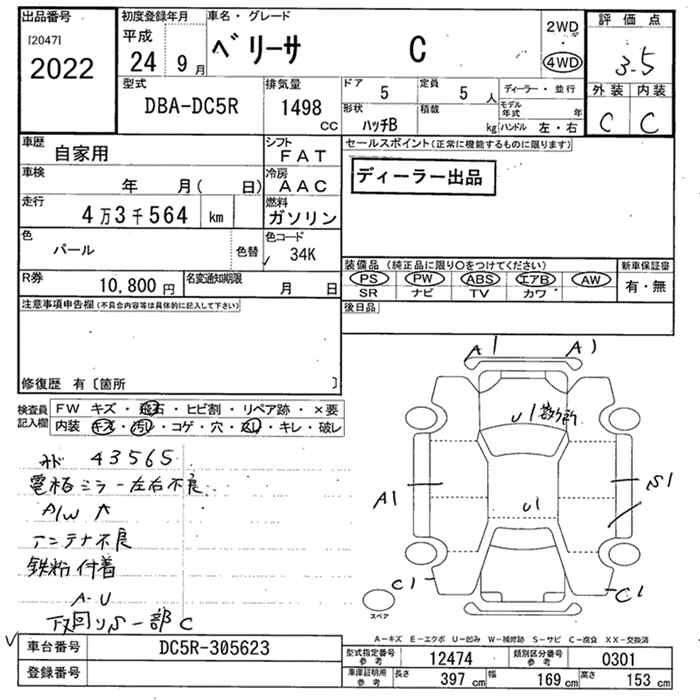 出品番号
[2047]
2022
初度登録年月
平成
24 9月
車名・グレード
ベリーサ C
2WD
・
4WD
評価点
3.5
外装 内装
C C
型式
DBA-DC5R
排気量
1498
CC
ドア
5
定員
5人
ディーラー・並行
形状
ハッチB
積載
kg
モデル年式 年
ハンドル 左・右
車歴
自家用
シフト
FAT
セールスポイント(正常に機能するものに限ります)
車検
年 月( 日)
冷房
AAC
ディーラー出品
走行
4万3千564 km
燃料
ガソリン
色
パール
色替
色コード
34K
装備品 (純正品に限り○をつけてください)
新車保証書
PS PW ABS エアB AW
有・無
R券
10,800円
名変通知期限
月 日
SR ナビ TV カワ
注意事項申告欄(不具合内容等は具体的に記入して下さい)
後日品
修復歴 有〔箇所 〕
検査員
記入欄
FW キズ・飛石・ヒビ割・リペア跡・×要
内装 キズ・汚レ・コゲ・穴・スレ・キレ・破レ
43565
電格ミラー左右不良
A/W ㅊ
アンテナ不良
鉄粉付着
A-U
下回りS一部C
A1
A1
U1
U1
A1
S1
C1
C1
スペア
A-キズ E-エクボ U-凹み W-補修跡 S-サビ C-腐食 XX-交換済
車台番号
DC5R-305623
登録番号
型式指定番号
参考
12474
類別区分番号
参考
0301
車庫証明用
参考
長さ
397 cm
幅
169 cm
高さ
153 cm